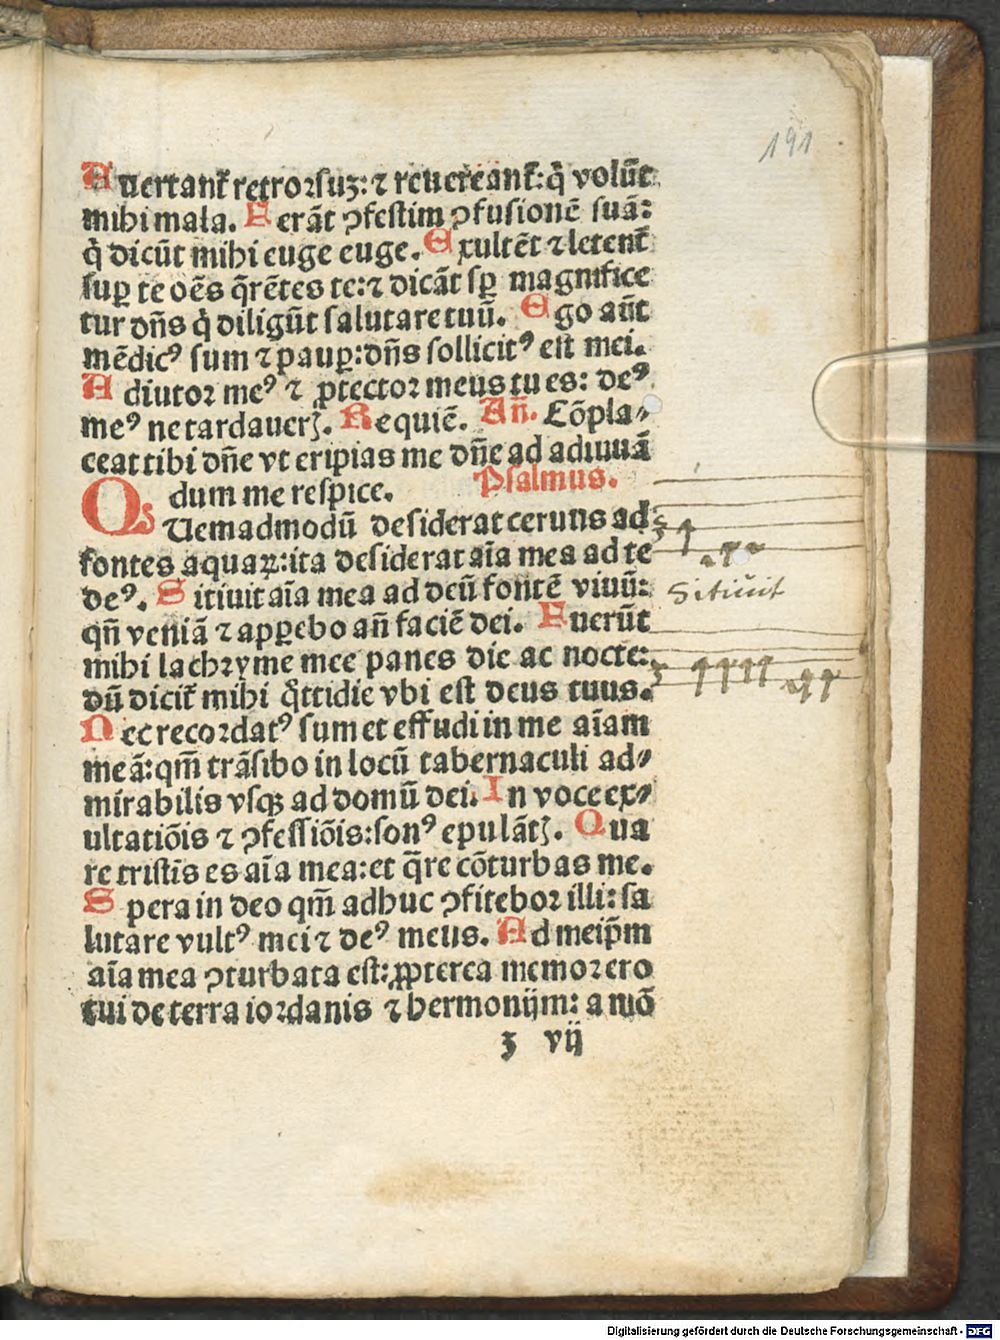 191
Auertant᷑ retrorsuꝫ: ⁊ reuereant᷑: q̇ volūt
mihi mala. Ferāt ꝯfestim ꝯfusionē suā:
q̇ dicūt mihi euge euge. Exultēt ⁊ letent᷑
suꝑ te oēs q̄rētes te: ⁊ dicāt sꝑ magnifice
tur dn̄s q̇ diligūt salutare tuū. Ego aūt
mēdicꝰ sum ⁊ pauꝑ: dn̄s sollicitꝰ est mei.
Adiutor meꝰ ⁊ ꝓtector meus tu es: deꝰ
meꝰ ne tardauerꝭ. Requiē. An̄. Cōpla⸗
ceat tibi dn̄e vt eripias me dn̄e ad adiuuā
dum me respice. Psalmus.
Quemadmodū desiderat ceruus ad
fontes aquaꝝ: ita desiderat aīa mea ad te
deꝰ. Sitiuit aīa mea ad deū fontē viuū:
qn̄ veniā ⁊ apꝑebo an̄ faciē dei. Fuerūt
mihi lachryme mee panes die ac nocte:
dū dicit᷑ mihi q̇ttidie vbi est deus tuus.
Nec recordatꝰ sum et effudi in me aīam
meā: qm̄ trāsibo in locū tabernaculi ad⸗
mirabilis vsqꝫ ad domū dei. In voce ex⸗
ultatiōis ⁊ ꝯfessiōis: sonꝰ epulātꝭ. Qua
re tristis es aīa mea: et q̄re cōturbas me.
Spera in deo qm̄ adhuc ꝯfitebor illi: sa
lutare vultꝰ mei ⁊ deꝰ meus. Ad meip̄m
aīa mea ꝯturbata est: ꝓpterea memor ero
tui de terra iordanis ⁊ hermonijm: a mō
z vij
Sitiuit
Digitalisierung gefördert durch die Deutsche Forschungsgemeinschaft - DFG